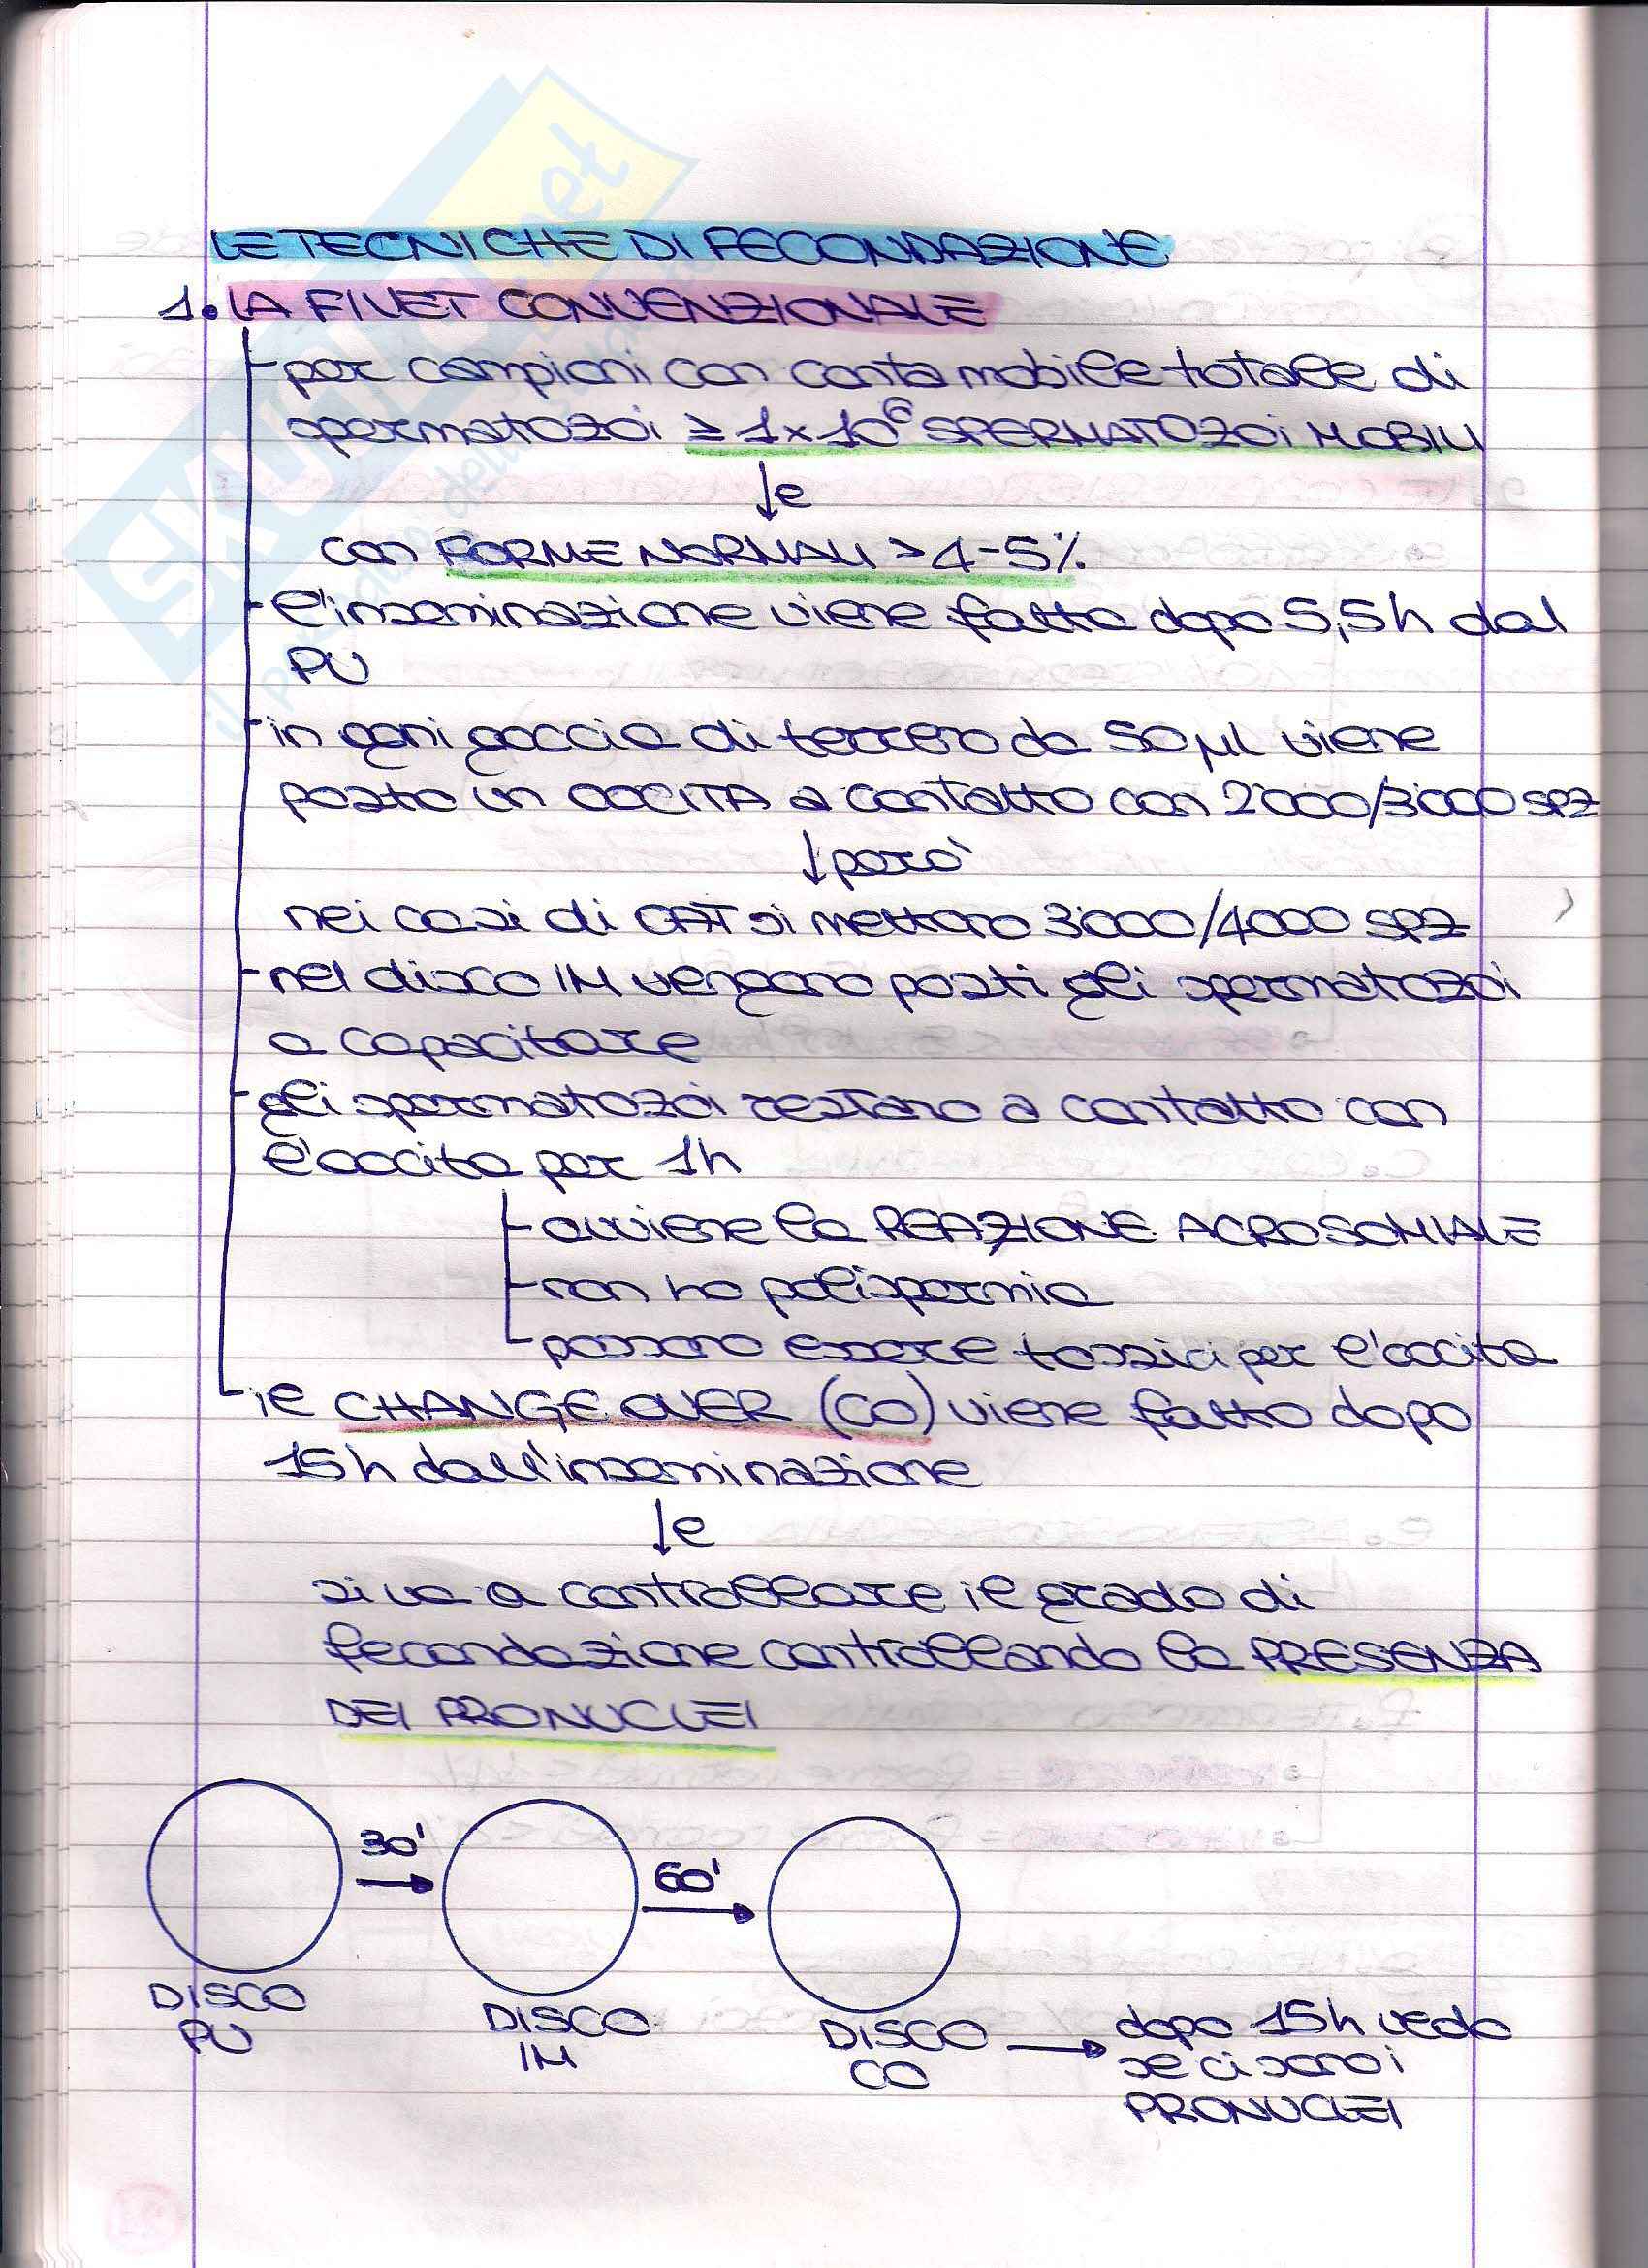 LE TECNICHE DI FECONDAZIONE
1. LA FIVET CONVENZIONALE
per campioni con conta mobile totale di
spermatozoi ≥ 1x10⁶ SPERMATOZOI MOBILI
↓e
con FORME NORMALI > 4-5%
l'inseminazione viene fatta dopo 5,5h dal
PU
in ogni goccia di terreno da 50 μl viene
posto un OOCITA a contatto con 2'000/3'000 SPZ
↓però
nei casi di OAT si mettono 3'000/4000 SPZ
nel disco IM vengono posti gli spermatozoi
a capacitare
gli spermatozoi restano a contatto con
l'oocita per 1h
avviene la REAZIONE ACROSOMIALE
non ho polispermia
possono essere tossici per l'oocita
il CHANGE OVER (CO) viene fatto dopo
15h dall'inseminazione
↓e
si va a controllare il grado di
fecondazione controllando la PRESENZA
DEI PRONUCLEI
30'
60'
DISCO
PU
DISCO
IM
DISCO
CO
dopo 15h vedo
se ci sono i
PRONUCLEI